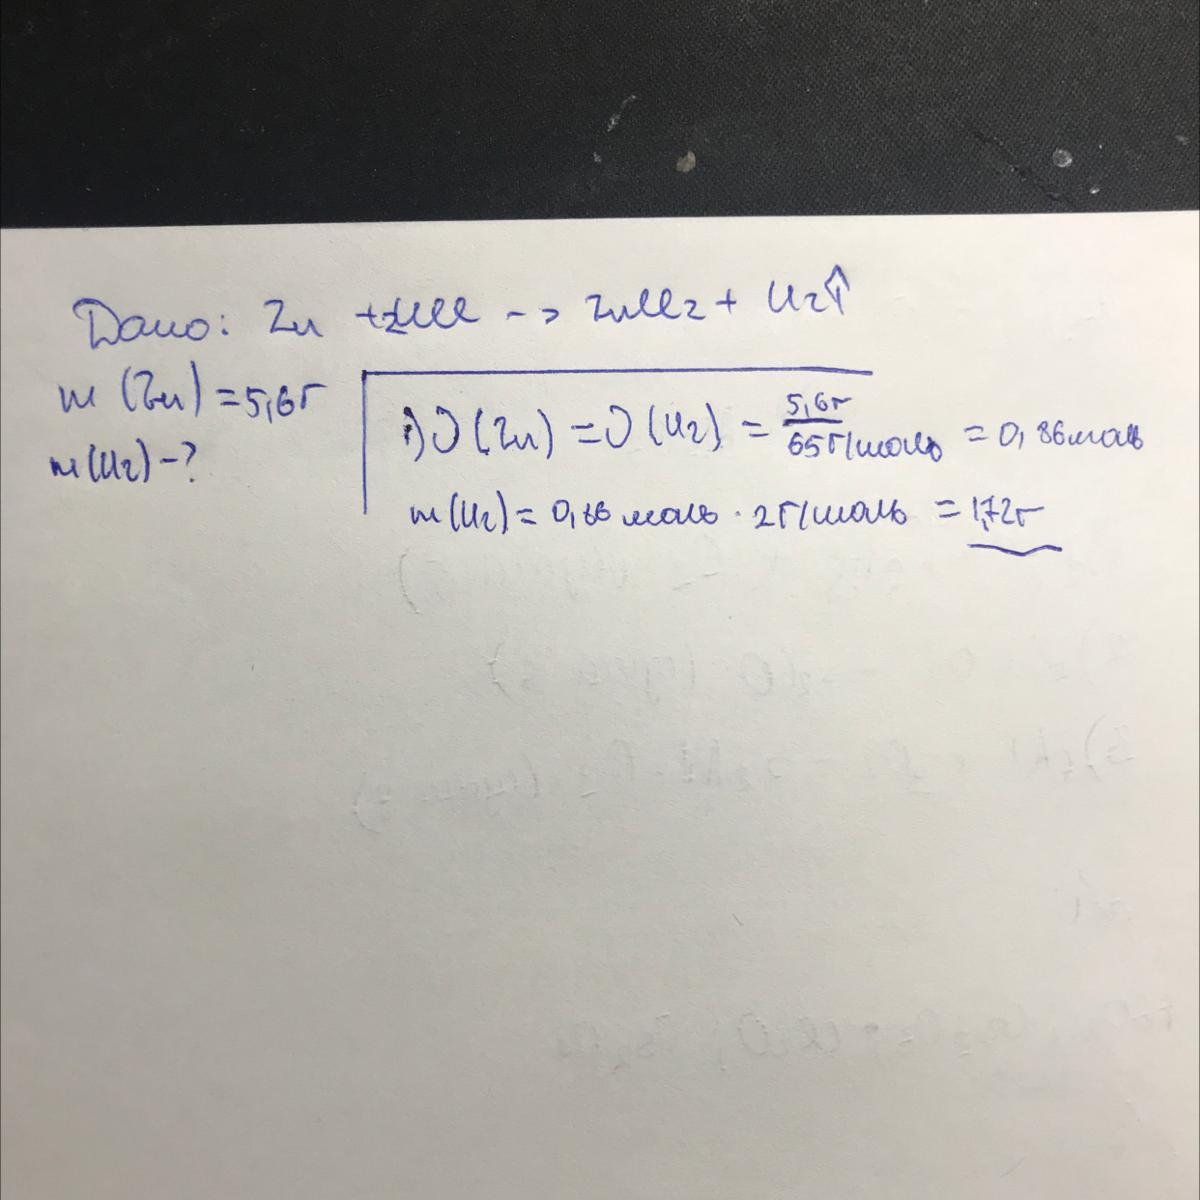 Дано: Zn + 2HCl -> ZnCl2 + H2↑
m (Zn) = 5,6г
m(H2) - ?
1) ν (Zn) = ν (H2) = 5,6г / 65г/моль = 0,86моль
m (H2) = 0,86 моль · 2г/моль = 1,72г